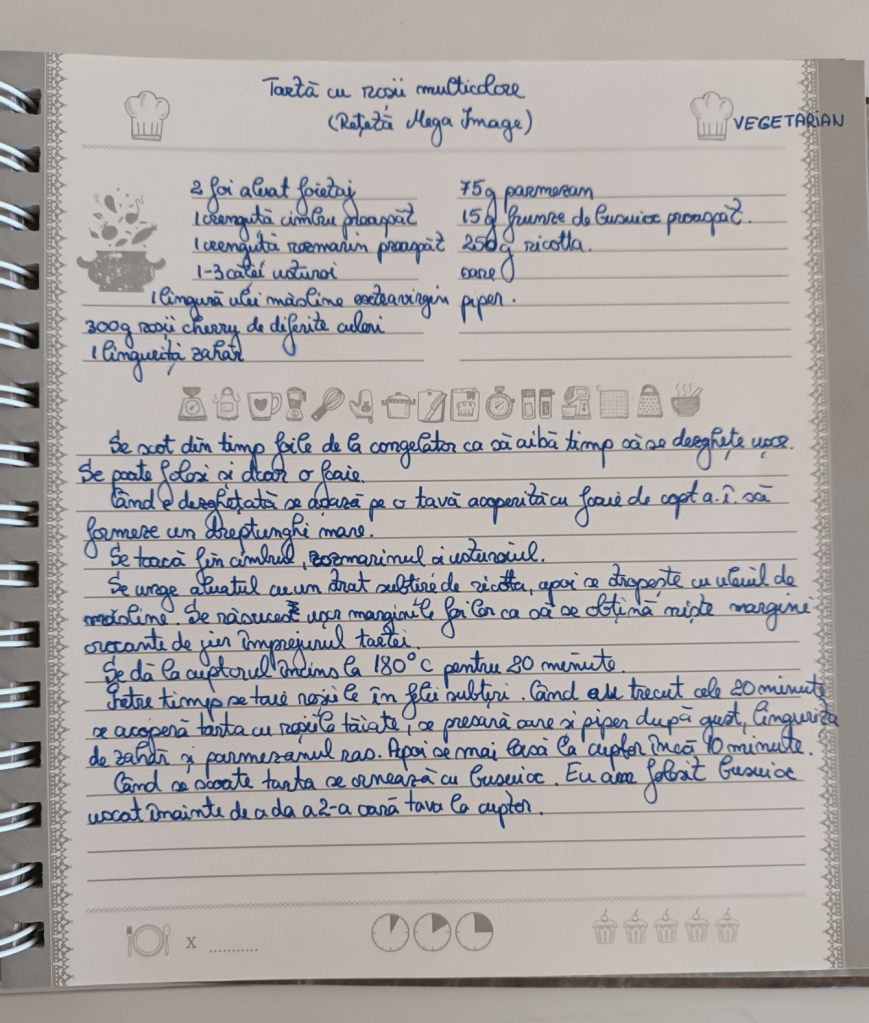 Tartă cu roșii multicolore
(Rețetă Mega Image)
VEGETARIAN
2 foi aluat foietaj
1 crenguță cimbru proaspăt
1 crenguță rozmarin proaspăt
1-3 căței usturoi
1 lingură ulei măsline extravirgin
300g roșii cherry de diferite culori
1 linguriță zahăr
75g parmezan
15g frunze de busuioc proaspăt.
250g ricotta.
sare
piper.
Se scot din timp foile de la congelator ca să aibă timp să se dezghețe ușor.
Se poate folosi și doar o foaie.
Când e dezghețată se așază pe o tavă acoperită cu foaie de copt a.î. să
formeze un dreptunghi mare.
Se toacă fin cimbrul, rozmarinul și usturoiul.
Se unge aluatul cu un strat subțire de ricotta, apoi se stropește cu uleiul de
măsline. Se răsucesc ușor marginile foilor ca să se obțină niște margini
crocante de jur împrejurul tartei.
Se dă la cuptorul încins la 180°C pentru 20 minute.
Între timp se taie roșiile în felii subțiri. Când au trecut cele 20 minute
se acoperă tarta cu roșiile tăiate, se presară sare și piper după gust, lingurița
de zahăr și parmezanul ras. Apoi se mai lasă la cuptor încă 10 minute.
Când se scoate tarta se ornează cu busuioc. Eu am folosit busuioc
uscat înainte de a da a 2-a oară tava la cuptor.
x ..........